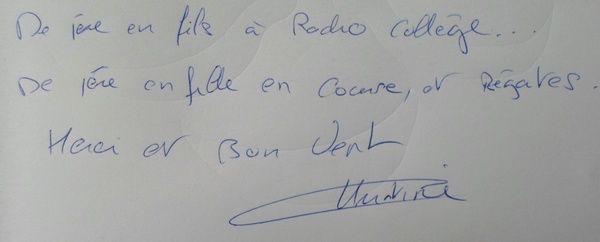 De père en fils à Radio Collège...
De père en fille en Course, et Régates.
Merci et Bon Vent